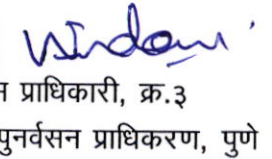 न प्राधिकारी, क्र.३
पुनर्वसन प्राधिकरण, पुणे